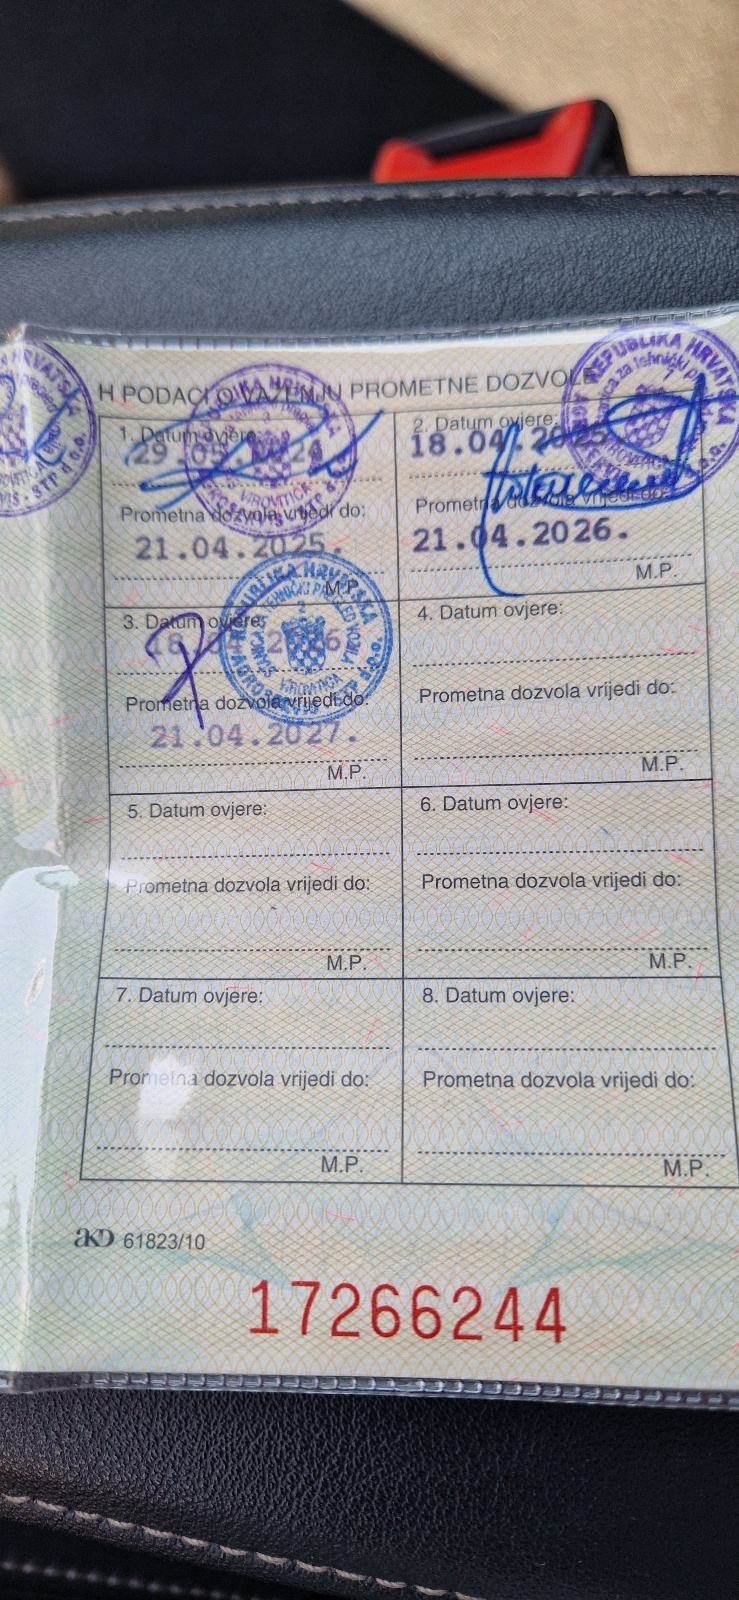 H PODACI O VAŽENJU PROMETNE DOZVOLE
1. Datum ovjere:
29.05.2024
Prometna dozvola vrijedi do:
21.04.2025.
M.P.
2. Datum ovjere:
18.04.2025
Prometna dozvola vrijedi do:
21.04.2026.
M.P.
3. Datum ovjere:
Prometna dozvola vrijedi do:
21.04.2027.
M.P.
4. Datum ovjere:
Prometna dozvola vrijedi do:
M.P.
5. Datum ovjere:
Prometna dozvola vrijedi do:
M.P.
6. Datum ovjere:
Prometna dozvola vrijedi do:
M.P.
7. Datum ovjere:
Prometna dozvola vrijedi do:
M.P.
8. Datum ovjere:
Prometna dozvola vrijedi do:
M.P.
AKD 61823/10
17266244
REPUBLIKA HRVATSKA
VIROVITICA
REPUBLIKA HRVATSKA
REPUBLIKA HRVATSKA
VIROVITICA